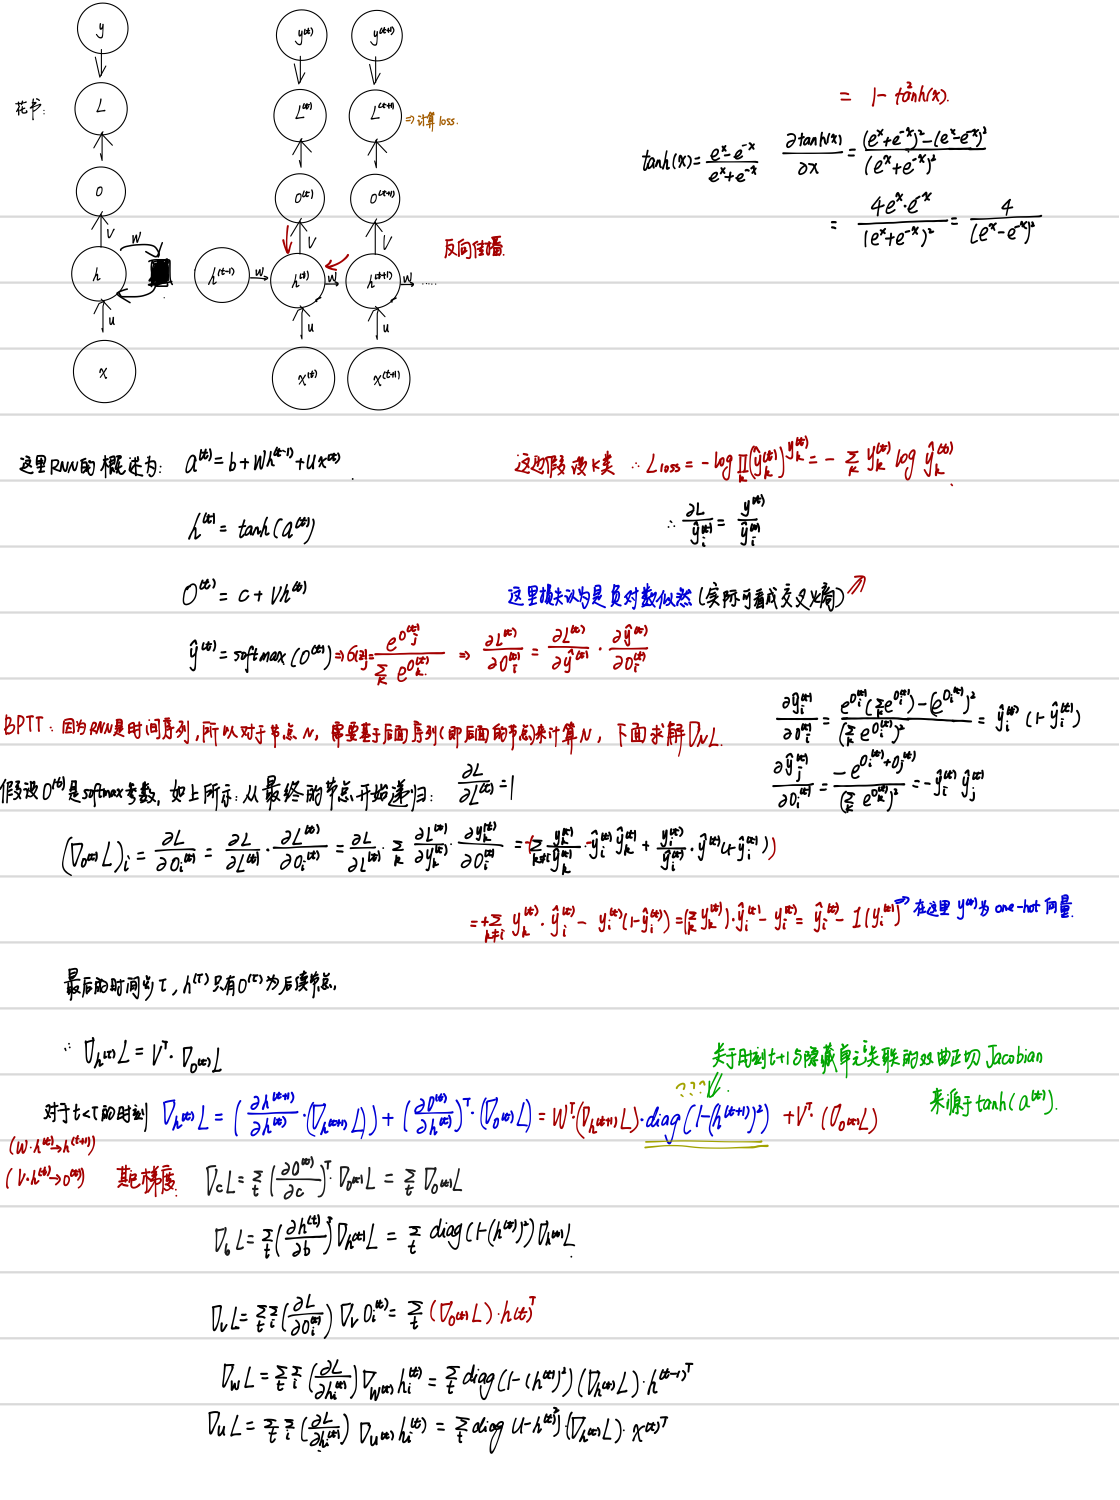 花书:
y y^(t) y^(t+1)
L L^(t) L^(t+1) ⇒计算loss.
o o^(t) o^(t+1)
V V V
W
h h^(t-1) W h^(t) W h^(t+1) W ......
反向传播.
u u u
x x^(t) x^(t+1)
= 1- tanh²(x).
tanh(x)= (e^x-e^-x)/(e^x+e^-x) ∂tanh(x)/∂x = ((e^x+e^-x)²-(e^x-e^-x)²)/(e^x+e^-x)²
= 4e^x·e^-x/(e^x+e^-x)² = 4/(e^x-e^-x)²
这里RNN的概述为: a^(t)=b+Wh^(t-1)+Ux^(t)
h^(t)= tanh(a^(t))
O^(t)= c+Vh^(t)
ŷ^(t)=softmax(O^(t)) ⇒ σ(z)_j= e^{O_j^(t)}/Σ_k e^{O_k^(t)} ⇒ ∂L^(t)/∂O_i^(t) = ∂L^(t)/∂ŷ^(t) · ∂ŷ^(t)/∂O_i^(t)
这边假设K类 ∴ L_loss = -log ∏_k(ŷ_k^(t))^{y_k^(t)} = - Σ_k y_k^(t) log ŷ_k^(t)
∴ ∂L/ŷ_i^(t) = y^(t)/ŷ_i^(t)
这里损失认为是负对数似然(实际可看成交叉熵)
∂ŷ_i^(t)/∂O_i^(t) = (e^{O_i^(t)}(Σ_k e^{O_i^(t)})-(e^{O_i^(t)})²)/(Σ_k e^{O_i^(t)})² = ŷ_i^(t)(1-ŷ_i^(t))
∂ŷ_j^(t)/∂O_i^(t) = -e^{O_i^(t)+O_j^(t)}/(Σ_k e^{O_k^(t)})² = -ŷ_i^(t)ŷ_j^(t)
BPTT: 因为RNN是时间序列,所以对于节点N, 需要基于后面序列(即后面的节点)来计算N, 下面求解∇_N L.
假设O^(t)是softmax参数, 如上所示: 从最终的节点开始递归: ∂L/∂L^(t) =1
(∇_{O^(t)}L)_i = ∂L/∂O_i^(t) = ∂L/∂L^(t) · ∂L^(t)/∂O_i^(t) = ∂L/∂L^(t) · Σ_k ∂L^(t)/∂y_k^(t) · ∂y_k^(t)/∂O_i^(t) = -(Σ_{k≠i} y_k^(t)/ŷ_k^(t) · -ŷ_i^(t)ŷ_k^(t) + y_i^(t)/ŷ_i^(t) · ŷ^(t)(1-ŷ_i^(t)))
=+Σ_{k≠i} y_k^(t)·ŷ_i^(t) - y_i^(t)(1-ŷ_i^(t)) =(Σ_k y_k^(t))·ŷ_i^(t)- y_i^(t) = ŷ_i^(t)- 1(y_i^(t)) ⇒在这里 y^(t)为 one-hot 向量.
最后的时间步τ, h^(τ)只有O^(τ)为后续节点.
∴ ∇_{h^(τ)}L = V^T· ∇_{O^(τ)}L
关于时刻t+1与隐藏单元i关联的双曲正切Jacobian
来源于tanh(a^(t)).
????
对于t<τ的时刻 ∇_{h^(t)}L = (∂h^(t+1)/∂h^(t) ·(∇_{h^(t+1)}L)) + (∂O^(t)/∂h^(t))^T·(∇_{O^(t)}L) = W^T(∇_{h^(t+1)}L)·diag(1-(h^(t+1))²) + V^T·(∇_{O^(t)}L)
(W·h^(t)→h^(t+1))
(V·h^(t)→O^(t)) 其它梯度: ∇_c L = Σ_t (∂O^(t)/∂c)^T·∇_{O^(t)}L = Σ_t ∇_{O^(t)}L
∇_b L = Σ_t (∂h^(t)/∂b)^T ∇_{h^(t)}L = Σ_t diag(1-(h^(t))²)∇_{h^(t)}L
∇_V L = Σ_t Σ_i (∂L/∂O_i^(t)) ∇_V O_i^(t) = Σ_t (∇_{O^(t)}L)·h(t)^T
∇_W L = Σ_t Σ_i (∂L/∂h_i^(t)) ∇_{W^(t)} h_i^(t) = Σ_t diag(1-(h^(t))²)(∇_{h^(t)}L)·h^(t-1)T
∇_U L = Σ_t Σ_i (∂L/∂h_i^(t)) ∇_{U^(t)} h_i^(t) = Σ_t diag(1-h^(t)²)(∇_{h^(t)}L)·x^(t)T